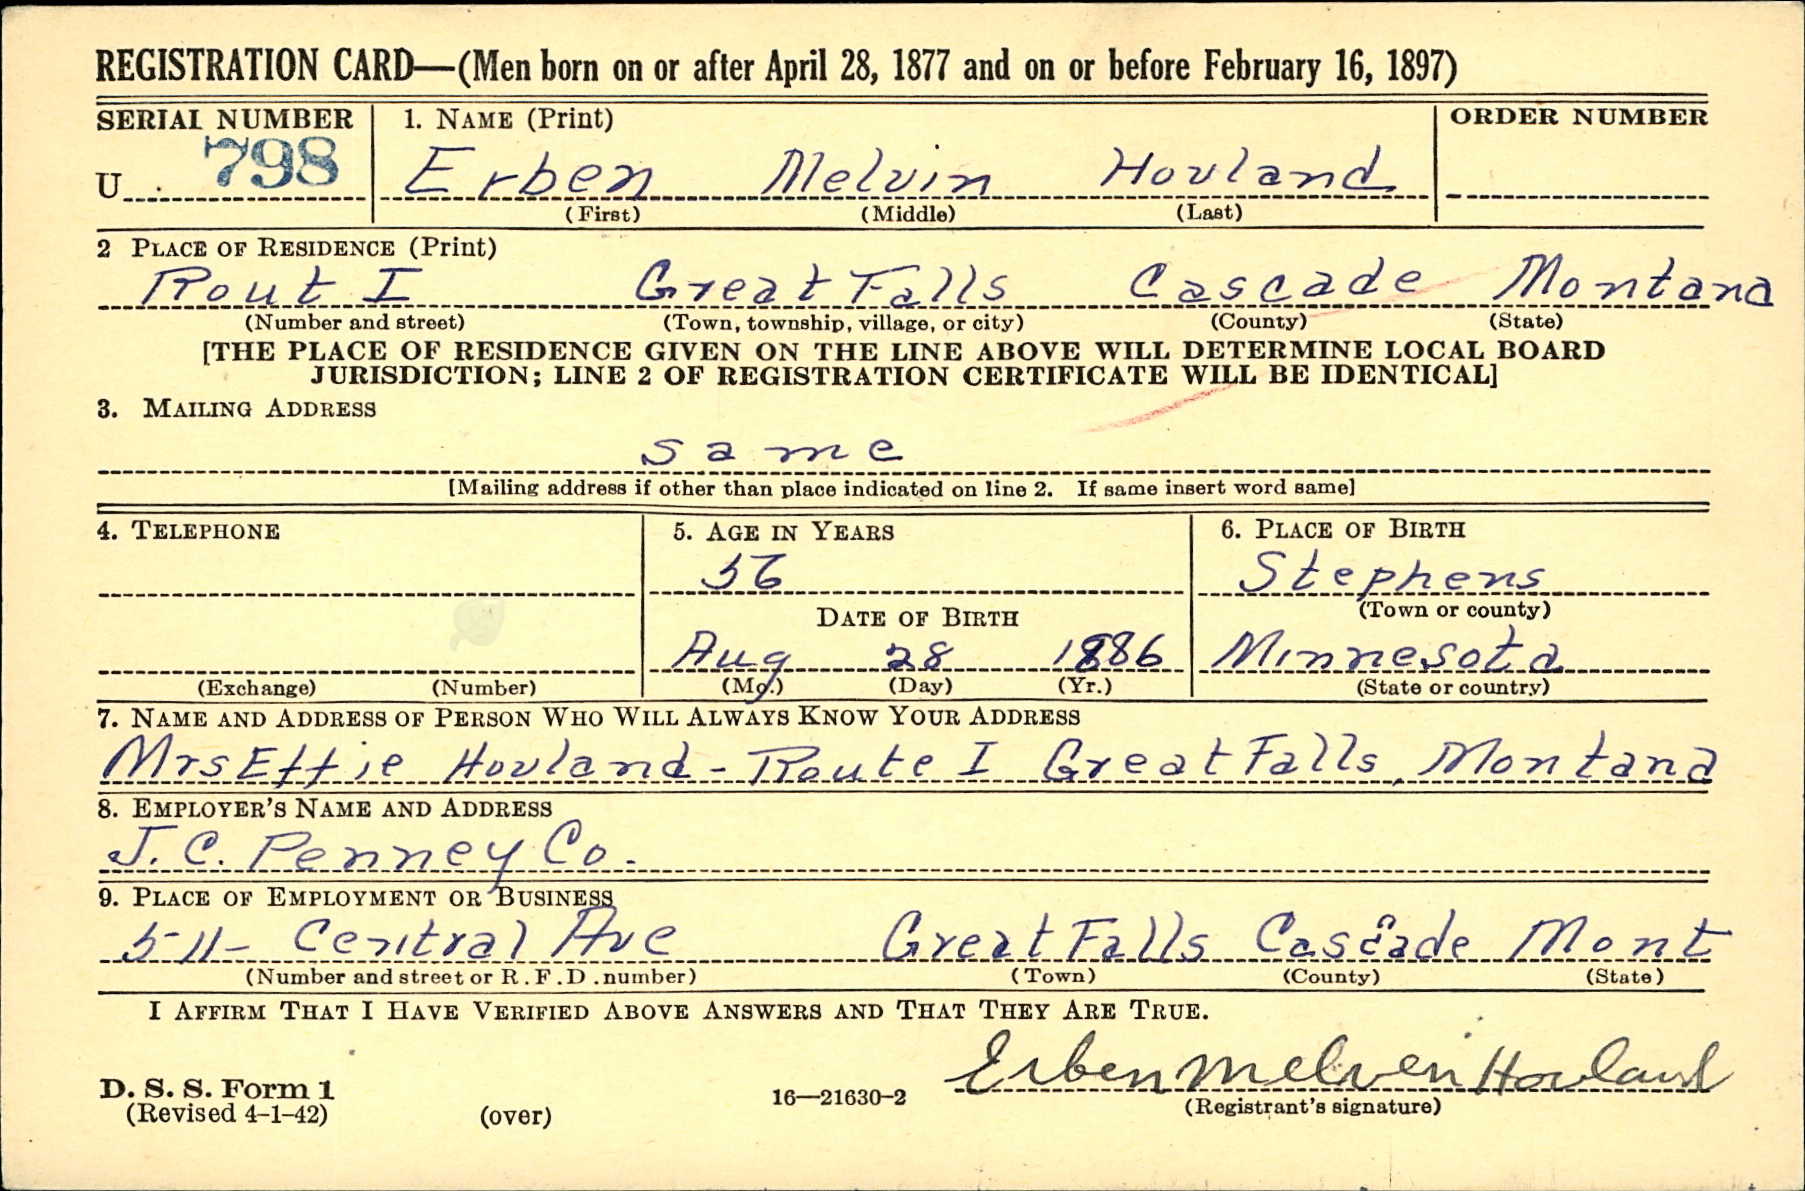 REGISTRATION CARD—(Men born on or after April 28, 1877 and on or before February 16, 1897)
SERIAL NUMBER 1. NAME (Print) ORDER NUMBER
U 798 Erben Melvin Hovland
(First) (Middle) (Last)
2 PLACE OF RESIDENCE (Print)
Rout I Great Falls Cascade Montana
(Number and street) (Town, township, village, or city) (County) (State)
[THE PLACE OF RESIDENCE GIVEN ON THE LINE ABOVE WILL DETERMINE LOCAL BOARD
JURISDICTION; LINE 2 OF REGISTRATION CERTIFICATE WILL BE IDENTICAL]
3. MAILING ADDRESS
same
[Mailing address if other than place indicated on line 2. If same insert word same]
4. TELEPHONE 5. AGE IN YEARS 6. PLACE OF BIRTH
56 Stephens
DATE OF BIRTH (Town or county)
Aug 28 1886 Minnesota
(Exchange) (Number) (Mo.) (Day) (Yr.) (State or country)
7. NAME AND ADDRESS OF PERSON WHO WILL ALWAYS KNOW YOUR ADDRESS
Mrs Effie Hovland - Route I Great Falls, Montana
8. EMPLOYER'S NAME AND ADDRESS
J. C. Penney Co.
9. PLACE OF EMPLOYMENT OR BUSINESS
511- Central Ave Great Falls Cascade Mont
(Number and street or R. F. D. number) (Town) (County) (State)
I AFFIRM THAT I HAVE VERIFIED ABOVE ANSWERS AND THAT THEY ARE TRUE.
Erben Melven Hovland
D. S. S. Form 1
(Revised 4-1-42) (over) 16—21630-2 (Registrant's signature)